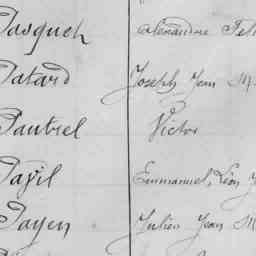 Pasquet Alexandre Féli
Patard Joseph Jean M
Pautrel Victor
Payil Emmanuel, Léon J
Payen Julien Jean M